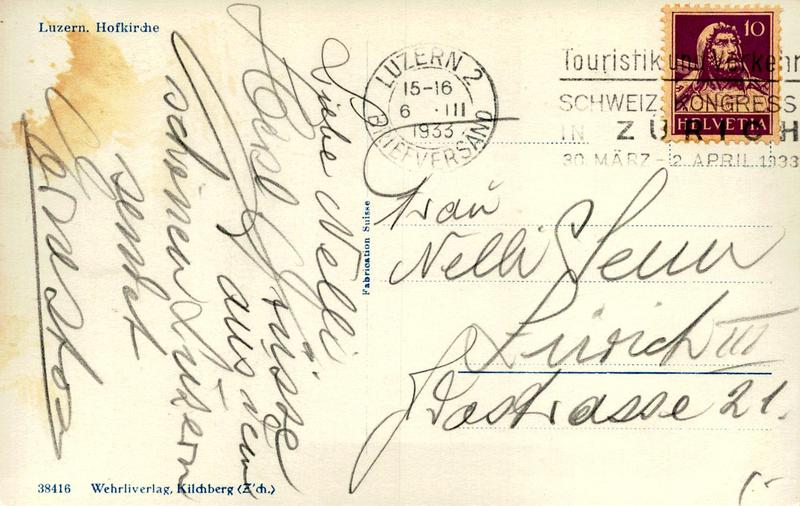 Luzern. Hofkirche
Liebe Nelli
Herzl. Grüsse
aus dem
schönen Luzern
sendet
LUZERN 2
15-16
6. III
1933
BRIEFVERSAND
Touristik und Verkehr
SCHWEIZ. KONGRESS
IN ZÜRICH
30. MÄRZ - 2. APRIL 1933
10
HELVETIA
Frau
Nelli Senn
Zürich III
Idastrasse 21.
Fabrication Suisse
38416 Wehrliverlag, Kilchberg (Z'ch.)